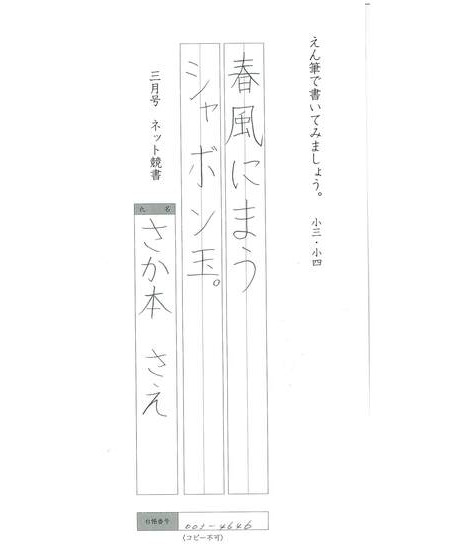 えん筆で書いてみましょう。 小三・小四
春風にまう
シャボン玉。
三月号 ネット競書
氏名
さか本 さえ
台帳番号
003-4646
(コピー不可)